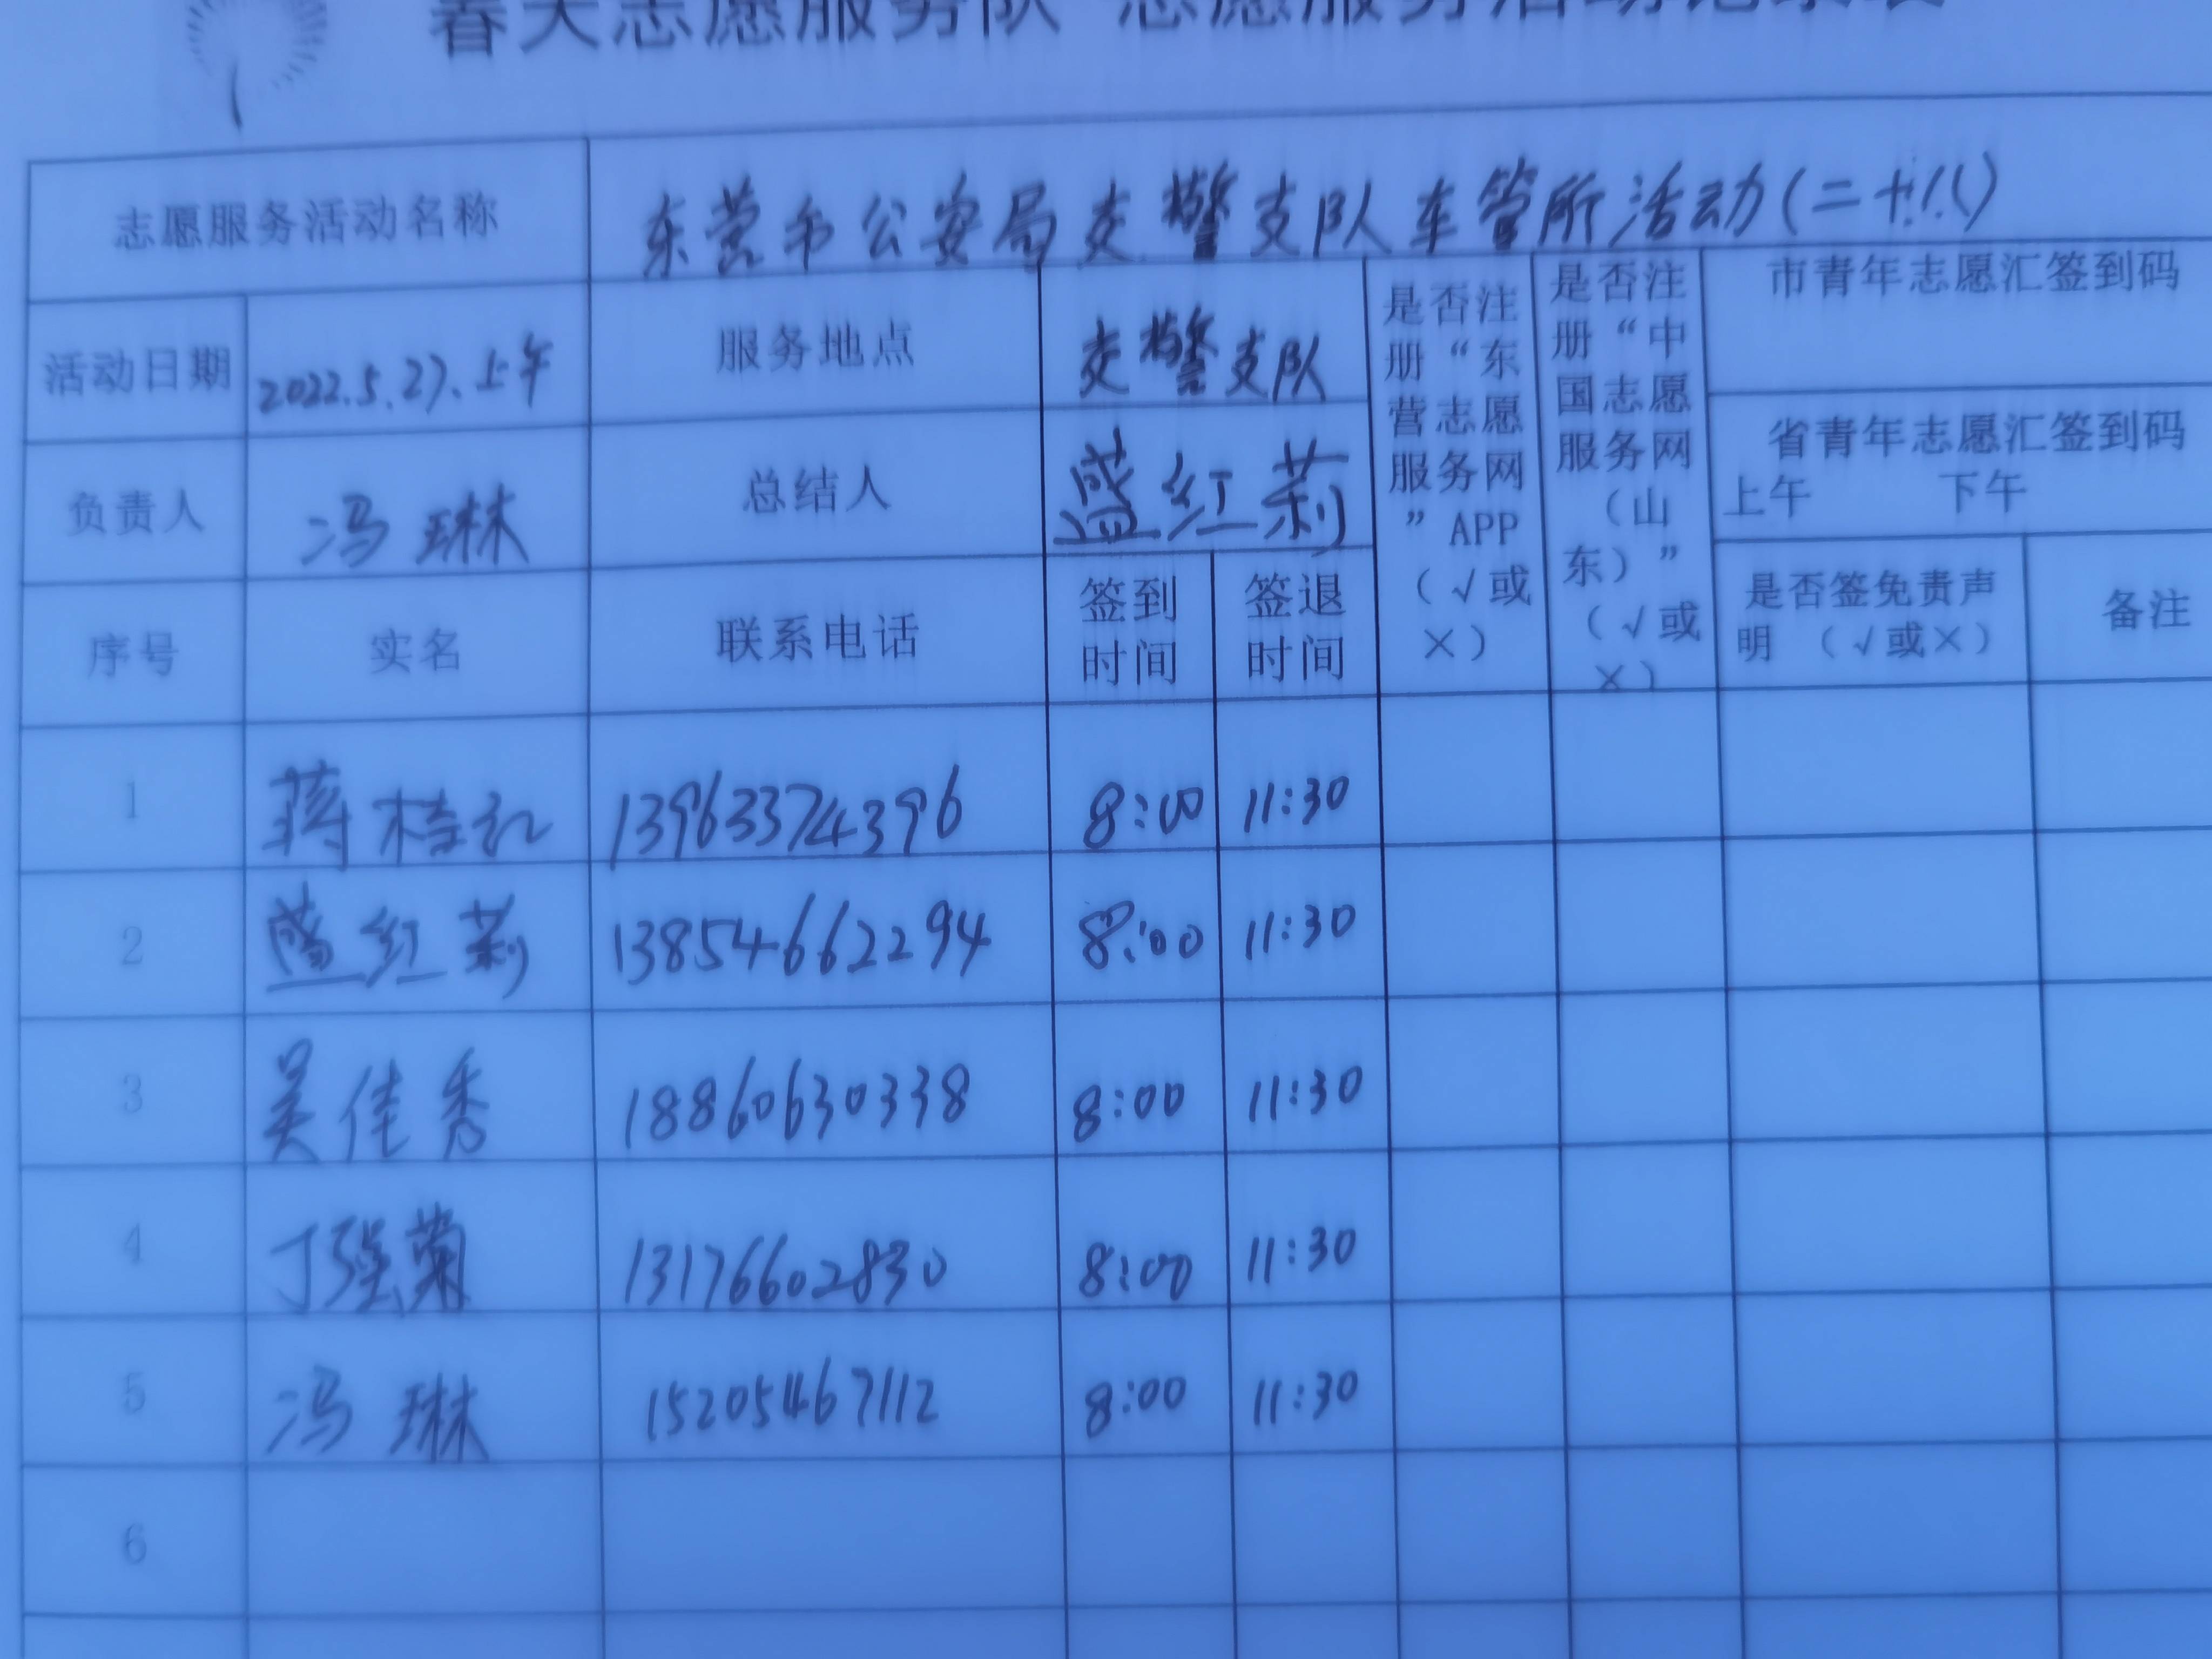 春天志愿服务队 志愿服务活动记录表
志愿服务活动名称 东营市公安局交警支队车管所活动(二十八)
活动日期 2022.5.27.上午 服务地点 交警支队 是否注册“东营志愿服务网”APP（√或×） 是否注册“中国志愿服务网（山东）”（√或×） 市青年志愿汇签到码
负责人 冯琳 总结人 盛红莉 省青年志愿汇签到码
上午 下午
序号 实名 联系电话 签到时间 签退时间 是否签免责声明（√或×） 备注
1 蒋桂红 13963374396 8:00 11:30
2 盛红莉 13854662294 8:00 11:30
3 吴佳秀 18860630338 8:00 11:30
4 丁强菊 13176602830 8:00 11:30
5 冯琳 15205467112 8:00 11:30
6